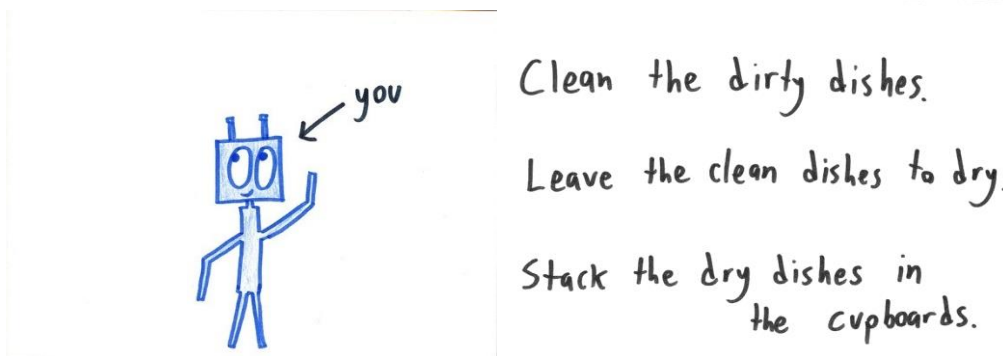 you
Clean the dirty dishes.
Leave the clean dishes to dry.
Stack the dry dishes in
the cupboards.